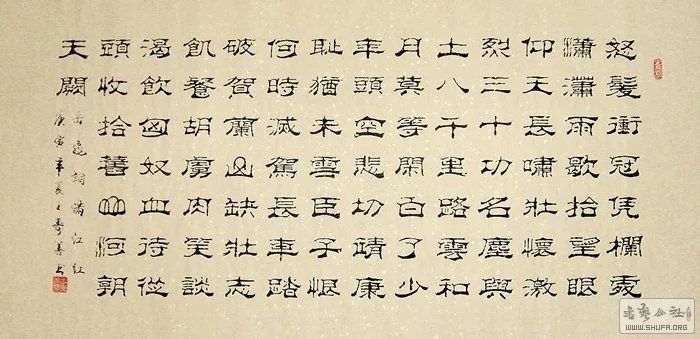 怒髮衝冠凭欄處
瀟瀟雨歇抬望眼
仰天長嘯壯懷激
烈三十功名塵與
土八千里路雲和
月莫等閑白了少
年頭空悲切靖康
耻猶未雪臣子恨
何時滅駕長車踏
破賀蘭山缺壯志
飢餐胡虜肉笑談
渴飲匈奴血待從
頭收拾舊山河朝
天闕
岳飛詞滿江紅
庚寅年夏書
WWW.SHUFA.ORG